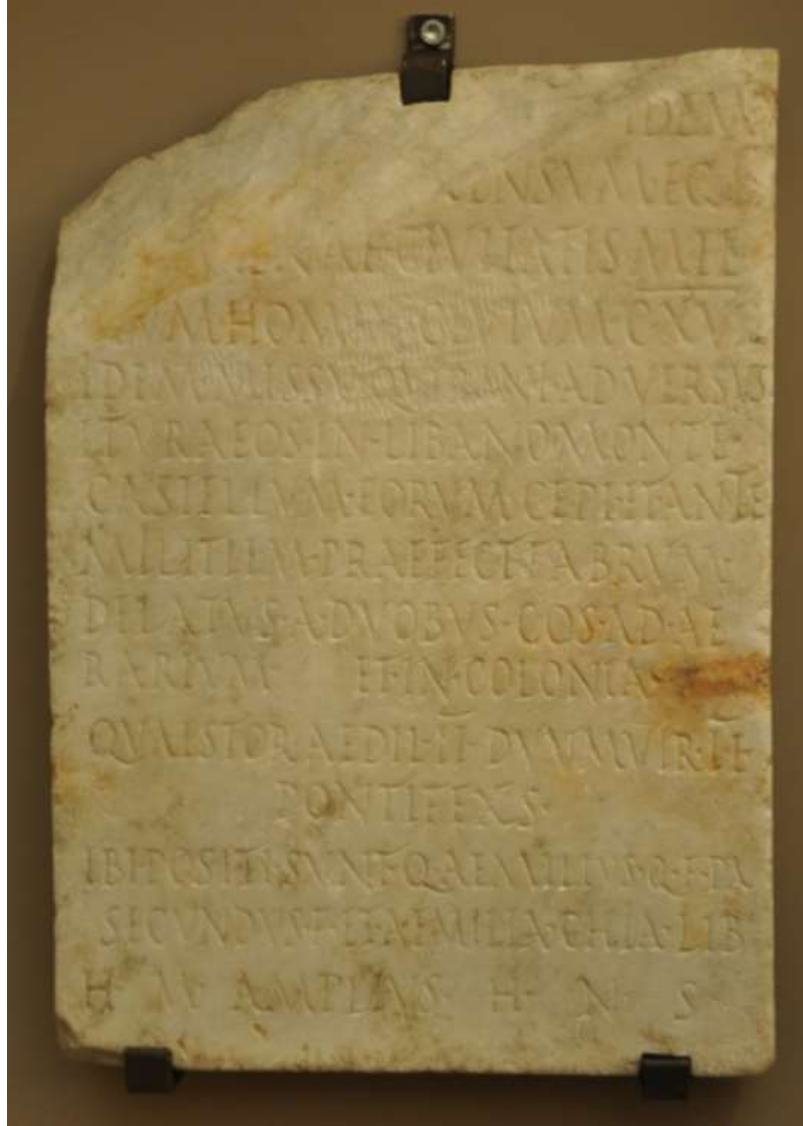 IDEM
CENSVM·EGI
NAE·CIVITATIS MIL
VM HOMIN·CIVIVM·CXVII
IDEM·MISSV·QVIRINI·ADVERSVS
ITVRAEOS·IN·LIBANO·MONTE·
CASTELLVM·EORVM·CEPI·ET·ANTE
MILITIEM·PRAEFECT·FABRVM·
DELATVS·A·DVOBVS·COS·AD·AE
RARIVM ET·IN·COLONIA·
QVAESTOR·AEDIL·II·DVVMVIR·II
PONTIFEXS·
IBI·POSITI·SVNT·Q·AEMILIVS·Q·F·PA
SECVNDVS·F·ET·AEMILIA·CHIA·LIB
H· M· AMPLIVS· H· N· S·